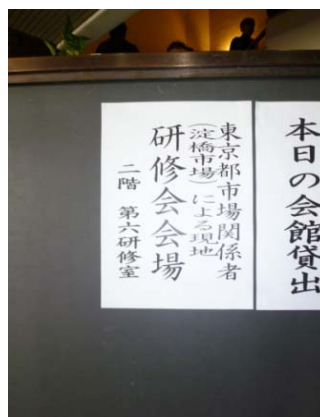 本日の会館貸出
東京都市場関係者
(淀橋市場)による現地
研修会会場
二階 第六研修室